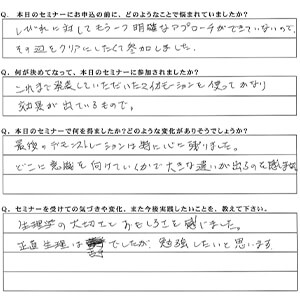 Q. 本日のセミナーにお申込の前に、どのようなことで悩まれていましたか？
しびれに対してもう一つ明確なアプローチができていないので、
その辺をクリアにしたくて参加しました。
Q. 何が決めてなって、本日のセミナーに参加されましたか？
これまで発表していただいたマイオモーションを使ってかなり
効果が出ているので。
Q. 本日のセミナーで何を得ましたか？どのような変化がありそうでしょうか？
最後のデモンストレーションは特に心に残りました。
どこに意識を向けていくかで大きな違いが出るのを感じます。
Q. セミナーを受けての気づきや変化、また今後実践したいことを、教えて下さい。
生理学の大切さとおもしろさを感じました。
正直生理は でしたが、勉強したいと思います。